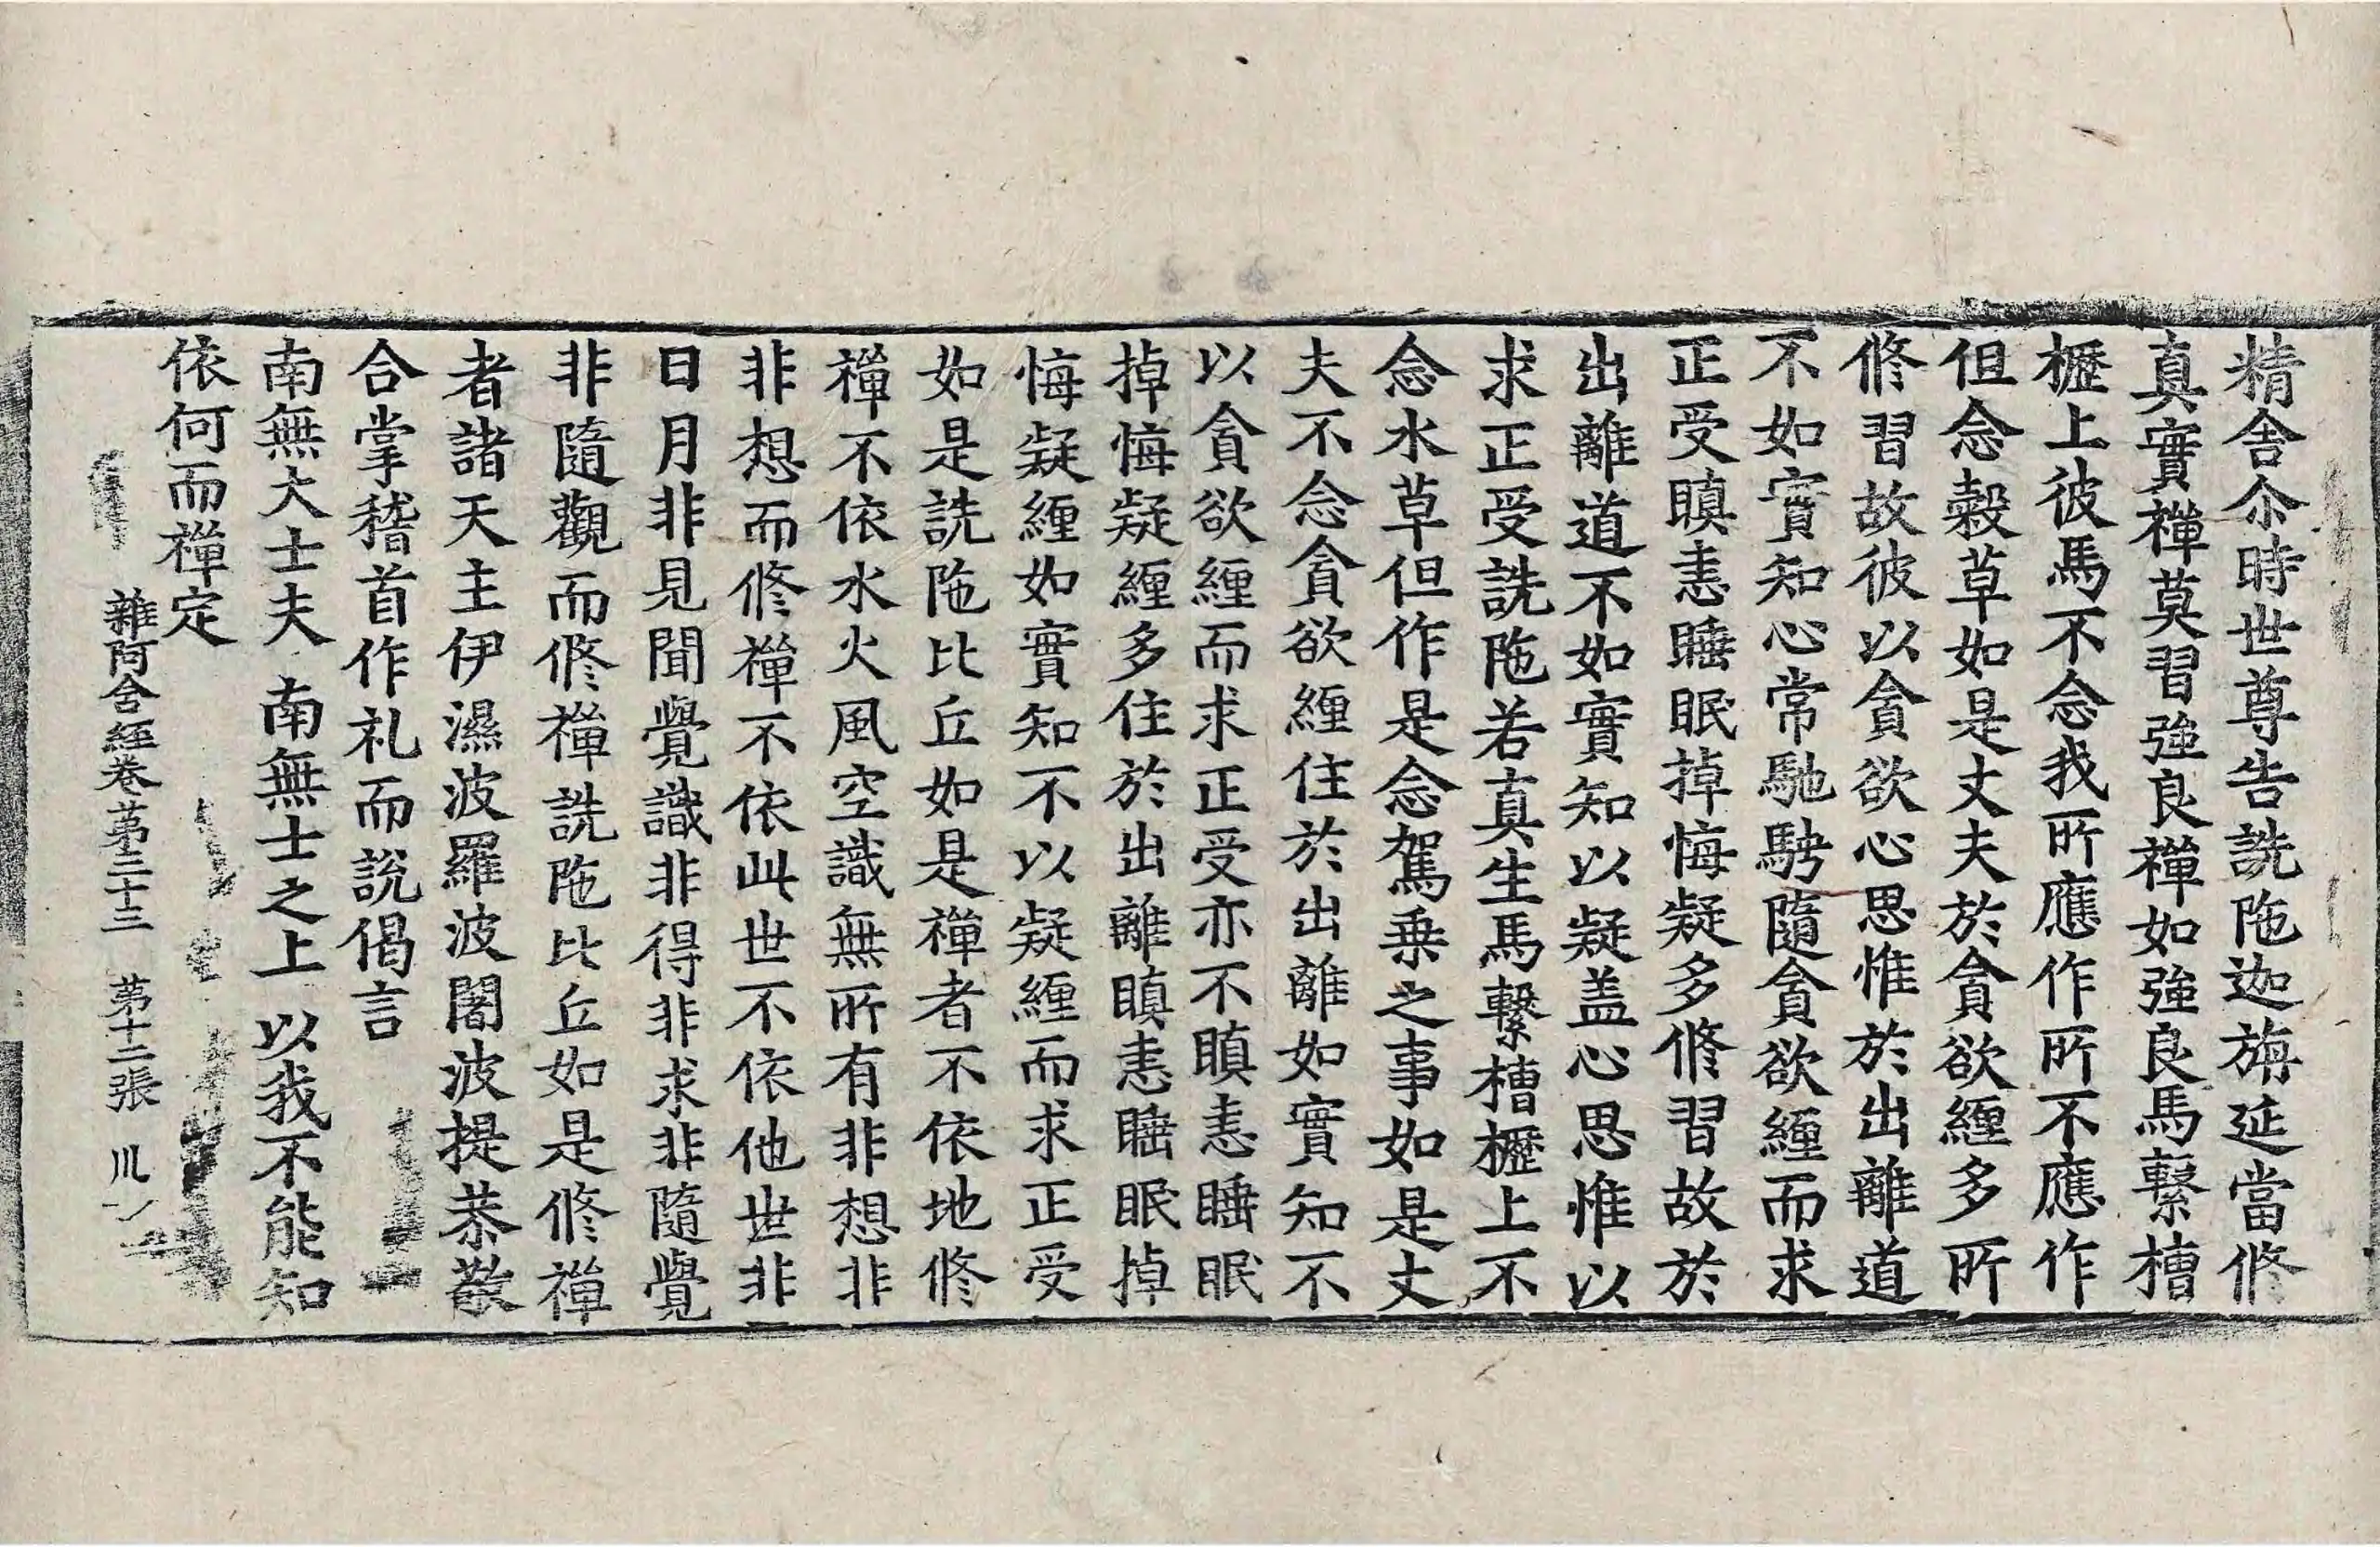 精舍尒時世尊告詵陁迦旃延當修
真實禪莫習強良禪如強良馬繫槽
櫪上彼馬不念我所應作所不應作
但念糓草如是丈夫於貪欲纏多所
修習故彼以貪欲心思惟於出離道
不如實知心常馳騁隨貪欲纏而求
正受瞋恚睡眠掉悔疑多修習故於
出離道不如實知以疑盖心思惟以
求正受詵陁若真生馬繫槽櫪上不
念水草但作是念駕乗之事如是丈
夫不念貪欲纏住於出離如實知不
以貪欲纏而求正受亦不瞋恚睡眠
掉悔疑纏多住於出離瞋恚睡眠掉
悔疑纏如實知不以疑纏而求正受
如是詵陁比丘如是禪者不依地修
禪不依水火風空識無所有非想非
非想而修禪不依此世不依他世非
日月非見聞覺識非得非求非隨覺
非隨觀而修禪詵陁比丘如是修禪
者諸天主伊濕波羅波闍波提恭敬
合掌稽首作礼而說偈言
南無大士夫 南無士之上 以我不能知
依何而禪定
雜阿含經卷第三十三 第十二張 川